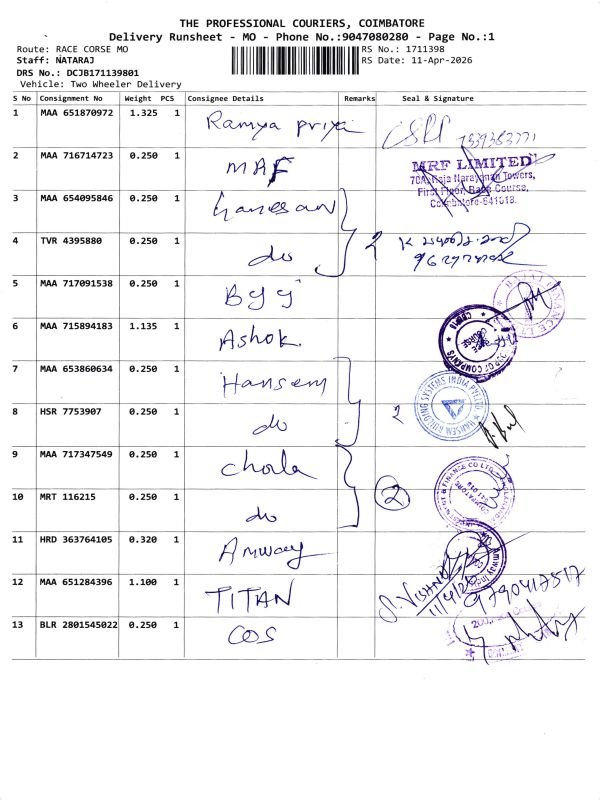 THE PROFESSIONAL COURIERS, COIMBATORE
Delivery Runsheet - MO - Phone No.:9047080280 - Page No.:1
Route: RACE CORSE MO
RS No.: 1711398
Staff: NATARAJ
RS Date: 11-Apr-2026
DRS No.: DCJB171139801
Vehicle: Two Wheeler Delivery
S No Consignment No Weight PCS Consignee Details Remarks Seal & Signature
1 MAA 651870972 1.325 1 Ramya priya
2 MAA 716714723 0.250 1 MAF
MRF LIMITED
70A, Raja Narayanan Towers,
First Floor, Race Course,
Coimbatore-641018.
3 MAA 654095846 0.250 1 Ganesan
4 TVR 4395880 0.250 1 do 2
5 MAA 717091538 0.250 1
6 MAA 715894183 1.135 1 Ashok
7 MAA 653860634 0.250 1 Hansem
HANSEM BUILDING SYSTEMS INDIA PVT LTD
8 HSR 7753907 0.250 1 do 2
9 MAA 717347549 0.250 1 Chola
10 MRT 116215 0.250 1 do 2
11 HRD 363764105 0.320 1 Amway
Amway India
12 MAA 651284396 1.100 1 TITAN 9790417517
13 BLR 2801545022 0.250 1 COS